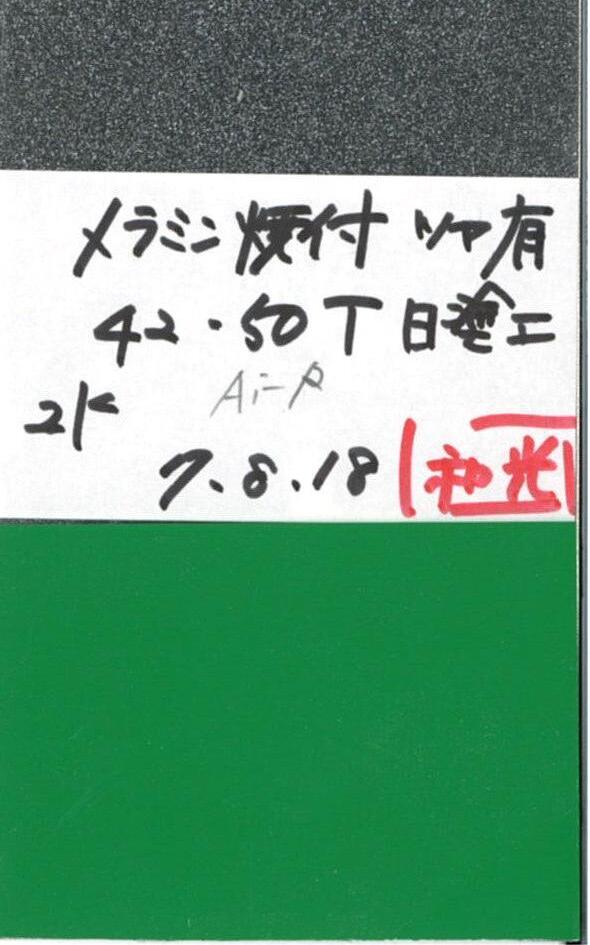 メラミン焼付 ツヤ有
42・50T 日塗工
Ai-P
2K
7.8.18 和光